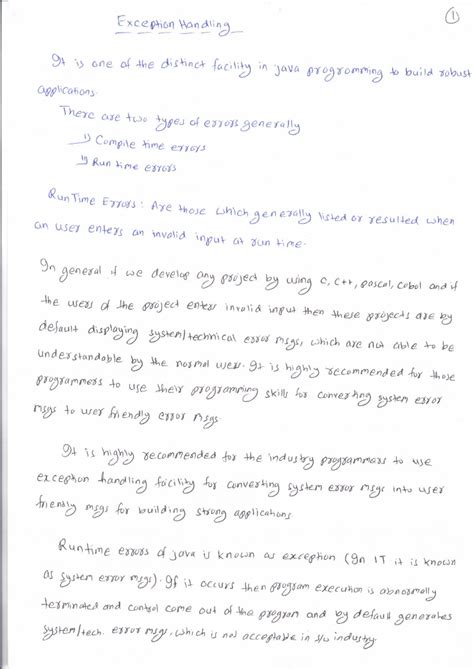 1
Exception Handling
It is one of the distinct facility in java programming to build robust
applications.
There are two types of errors generally
1) Compile time errors
2) Run time errors
RunTime Errors: Are those which generally listed or resulted when
an user enters an invalid input at run time.
In general if we develop any project by using C, C++, pascal, cobol and if
the users of the project enters invalid input then these projects are by
default displaying system/technical error msgs, which are not able to be
understandable by the normal users. It is highly recommended for those
programmers to use their programming skills for converting system error
msgs to user friendly error msgs.
It is highly recommended for the industry programmers to use
exception handling facility for converting system error msgs into user
friendly msgs for building strong applications.
Runtime errors of java is known as exception (In IT it is known
as system error msgs). If is occurs then program execution is abnormally
terminated and control come out of the program and by default generates
system/tech. error msgs, which is not acceptable in s/w industry.